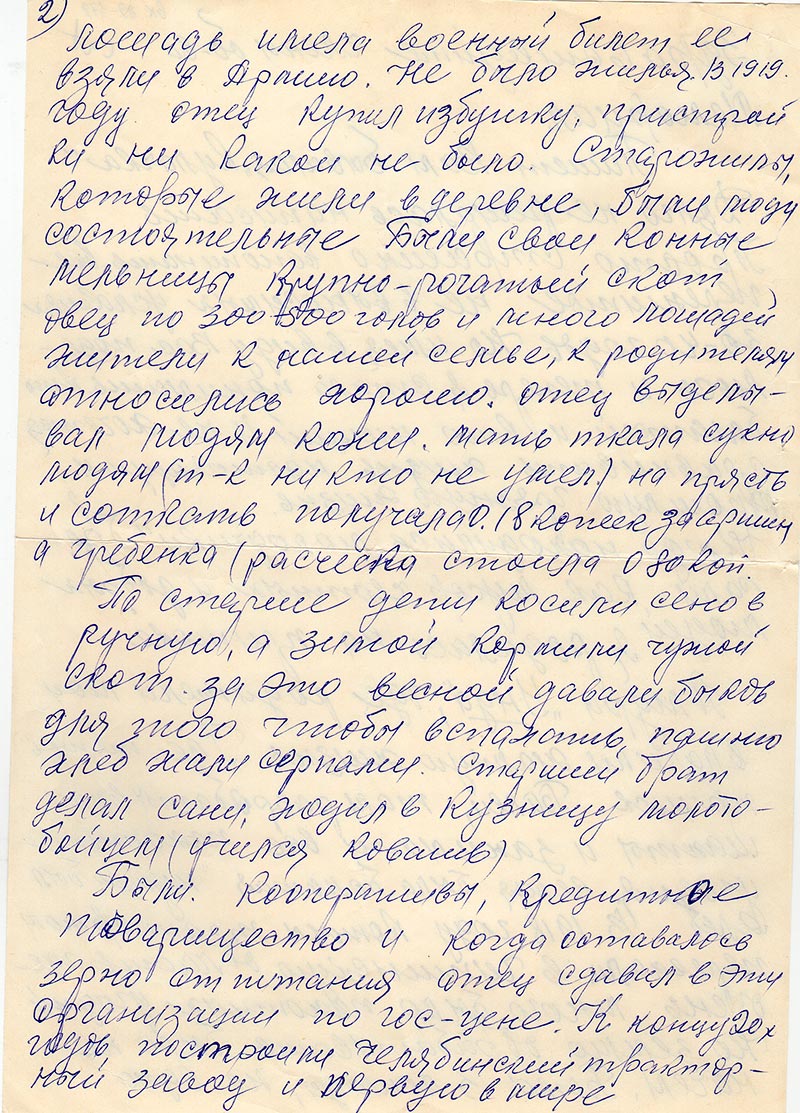 2)
лошадь имела военный билет ее
взяли в Армию. Не было жилья. В 1919.
году отец купил избушку, пристрой
ки ни какой не было. Старожилы,
которые жили в деревне, были люди
состоятельные Были свои конные
мельницы Крупно-рогатый скот
овец по 300-500 голов и много лошадей
жители к нашей семье, к родителям
относились хорошо. отец выделы-
вал людям кожи. мать ткала сукно
людям (т-к ни кто не умел) на прясть
и соткать получала 0.18 копеек за аршин
а гребенка (расческа стоила 0 80 коп.
По старше дети косили сено в
ручную, а зимой кормили чужой
скот. за это весной давали быков
для этого чтобы вспахать пашню
хлеб жали серпами. Старший брат
делал сани, ходил в Кузницу молото-
бойцем (учился ковать)
Были. Кооперативы, Кредитное
товарищество и когда оставалось
зерно от питания отец сдавал в эти
организации по гос-цене. К концу 20х
годов построили Челябинский трактор-
ный завод и первую в мире